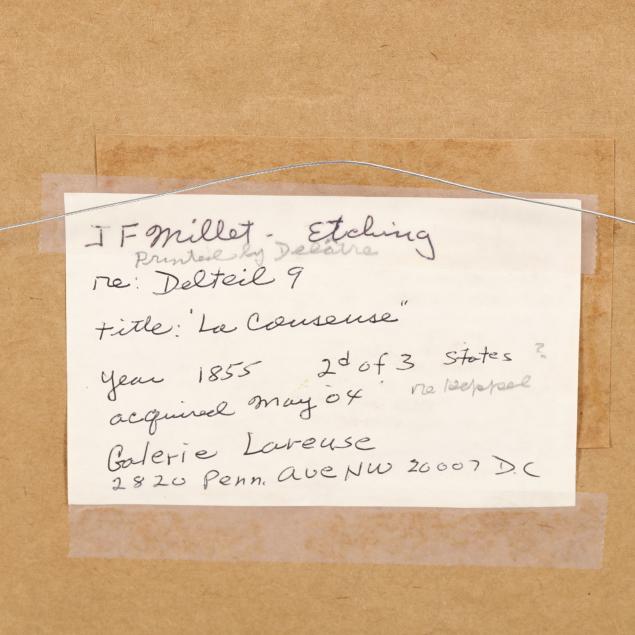 J F Millet - Etching
Printed by Delâtre
re: Delteil 9
title: "La Couseuse"
year 1855 2d of 3 states ?
re Keppel
acquired May '04
Galerie Lareuse
2820 Penn. Ave NW 20007 D.C